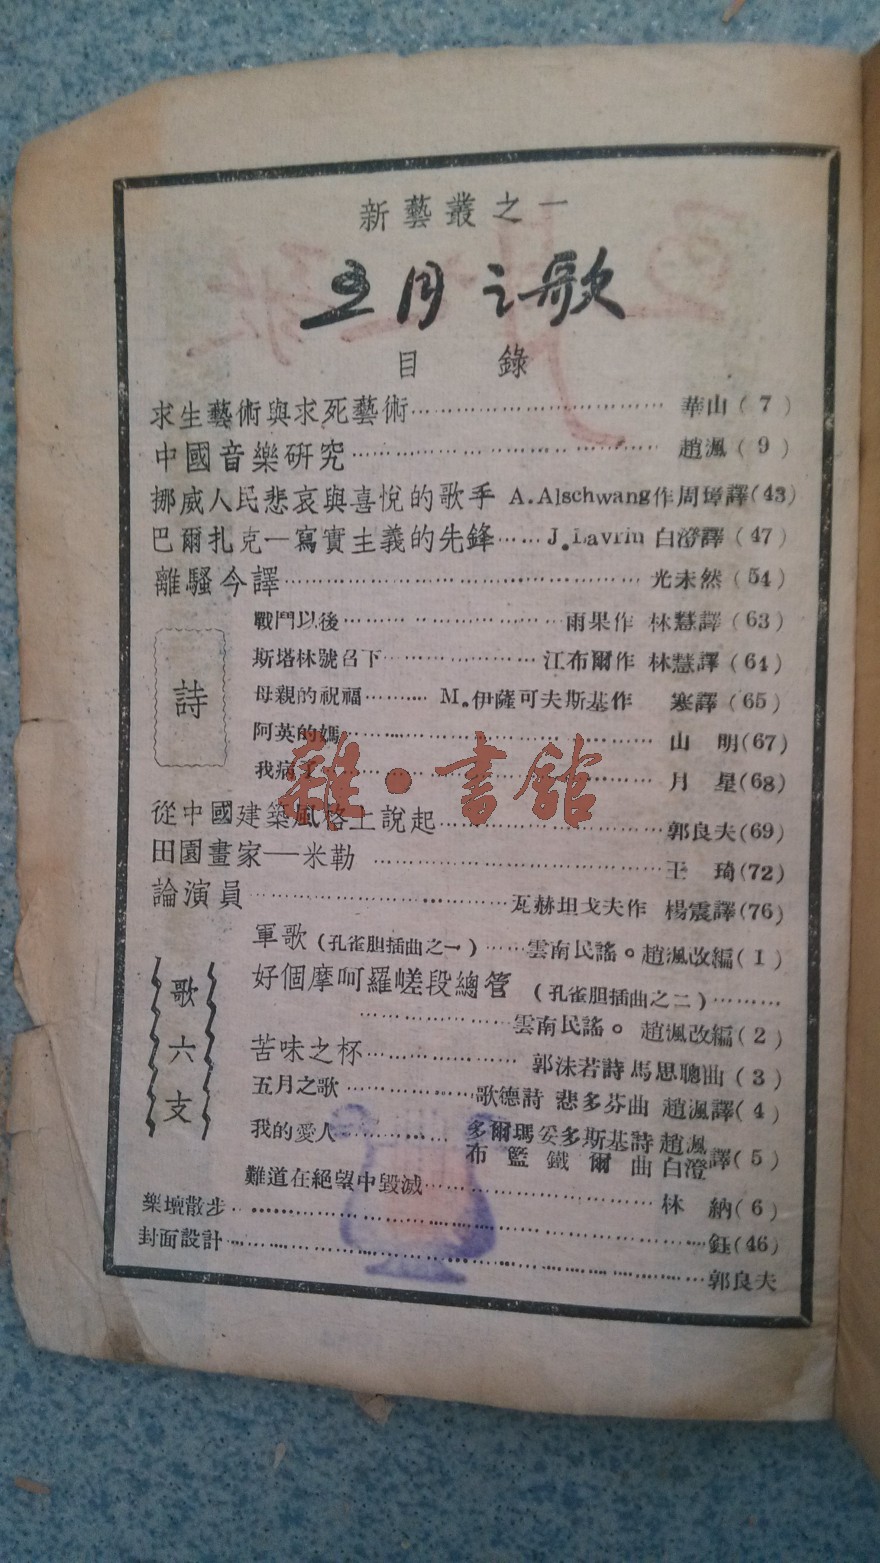 新藝叢之一
五月之歌
目 錄
求生藝術與求死藝術……………………華山(7)
中國音樂研究……………………趙渢(9)
挪威人民悲哀與喜悅的歌手 A.Alschwang作周璋譯(43)
巴爾扎克—寫實主義的先鋒……J.Lavrin 白澄譯(47)
離騷今譯……………………光未然(54)
詩
戰鬥以後……………………雨果作 林慧譯(63)
斯塔林號召下………………江布爾作 林慧譯(64)
母親的祝福………M.伊薩可夫斯基作 寒譯(65)
阿英的媽……………………山 明(67)
我病了……………………月 星(68)
從中國建築風格上說起……………………郭良夫(69)
田園畫家——米勒……………………王 琦(72)
論演員……………………瓦赫坦戈夫作 楊震譯(76)
歌六支
軍歌(孔雀胆插曲之一)……雲南民謠。趙渢改編(1)
好個摩呵羅嵯段總管 (孔雀胆插曲之二)………
……………雲南民謠。趙渢改編(2)
苦味之杯………………郭沫若詩 馬思聰曲(3)
五月之歌……………歌德詩 悲多芬曲 趙渢譯(4)
我的愛人……………多爾瑪妥多斯基詩 趙渢
布 監 鐵 爾 曲 白澄譯(5)
難道在絕望中毀滅……………………林 納(6)
樂壇散步……………………鈺(46)
封面設計……………………郭良夫
雜·書館